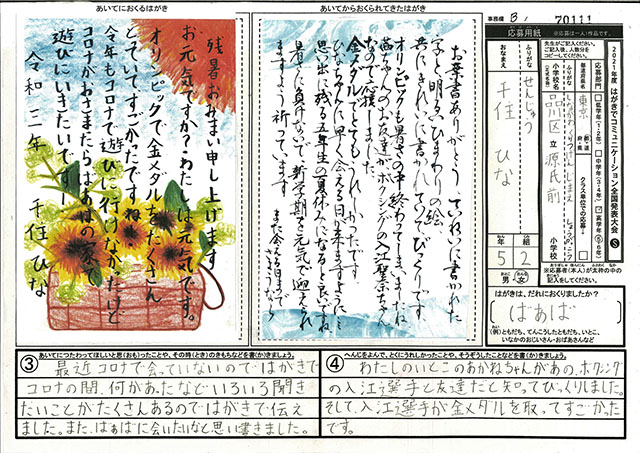 あいてにおくるはがき
残暑お見まい申し上げます
お元気ですか?わたしは元気です。
オリンピックで金メダルをたくさん
とっていてすごかったですね。
今年もコロナで遊びに行けなかったけど
コロナがおさまったらばあばの家で
遊びにいきたいです!
令和三年
千住 ひな
あいてからおくられてきたはがき
お葉書ありがとう。ていねいに書かれた
字と明るいひまわりの絵
オリンピックも暑さの中終わってしまいましたね
茜ちゃんのお友達がボクシングの入江聖奈ちゃん
なので応援しました。
金メダルでとてもうれしかったです
ひなちゃんに早く会える日が来ますように…
思い出に残る五年生の夏休みになると良いですね
暑さに負けないで、新学期を元気で迎えられ
ますよう祈っています
また会える日まで
事務欄
B
70111
応募用紙
※応募は一人1作品です。
2021年度 はがきでコミュニケーション全国発表大会
応募部門
低学年(1・2年)
中学年(3・4年)
高学年(5・6年)
都道府県名
東京
都
道
府
県
クラス単位での応募
小学校名
品川区 立 源氏前
小学校
ふりがな
せんじゅう ひな
おなまえ
千住 ひな
5
年
2
組
男・女
※応募者(本人)が太枠の中の
記入をしてください。
はがきは、だれにおくりましたか?
ばあば
(例)ともだち、てんこうしたともだち、いとこ、
いなかのおじいさん・おばあさんなど
③
あいてにつたわってほしいと思(おも)ったことや、その時(とき)のきもちなどを書(か)きましょう。
最近コロナで会っていないのではがきで
コロナの間、何があったなどいろいろ聞き
たいことがたくさんあるのではがきで伝え
ました。また、ばぁばに会いたいなと思い書きました。
④
へんじをよんで、とくにうれしかったことや、そうぞうしたことなどを書(か)きましょう。
わたしのいとこのあかねちゃんがあの、ボクシング
の入江選手と友達だと知ってびっくりしました。
そして、入江選手が金メダルを取ってすごかった
です。